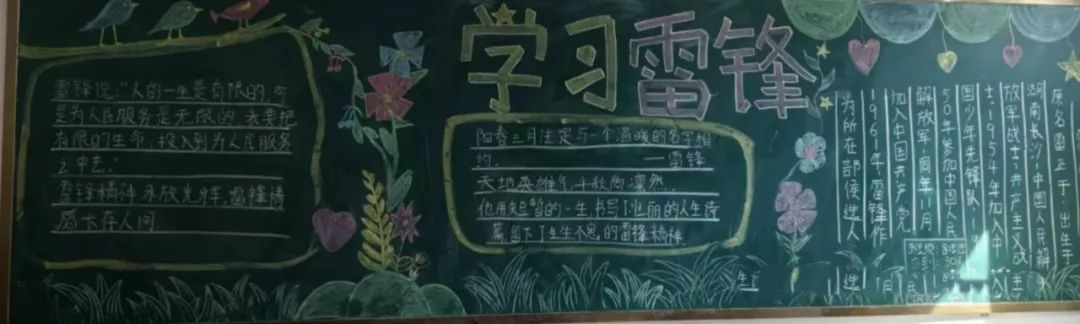 学习雷锋
雷锋说:"人的一生是有限的,可
是为人民服务是无限的,我要把
有限的生命,投入到为人民服务
之中去."
雷锋精神永放光辉,雷锋情
感长存人间.
阳春三月注定与一个温暖的名字相
约.——雷锋
天地英雄气,千秋尚凛然.
他用短暂的一生,书写了壮丽的人生诗
篇,留下了生生不息的雷锋精神.
原名雷正
出生于
湖南长沙,中国人民解
放军战士,共产主义战
士,1954年加入中
国少年先锋队,
年参加中国人民
解放军,同年11月
加入中国共产党
1961年,雷锋作
为所在部候选人